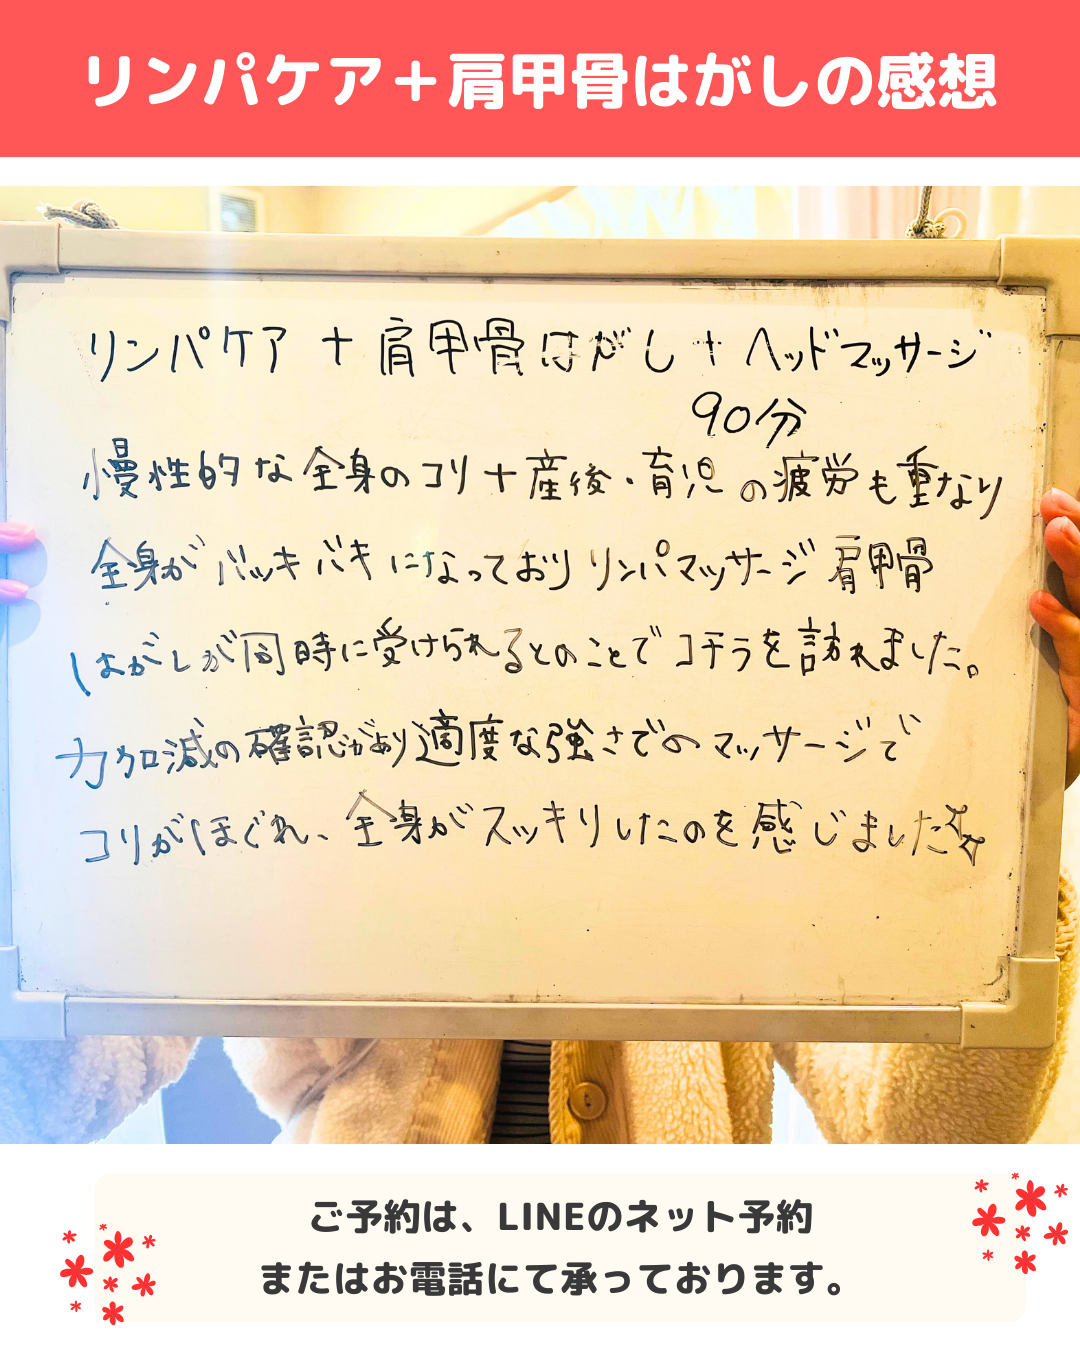 リンパケア＋肩甲骨はがしの感想
リンパケア + 肩甲骨はがし + ヘッドマッサージ
90分
慢性的な全身のコリ + 産後・育児の疲労も重なり
全身がバッキバキになっておりリンパマッサージ肩甲骨
はがしが同時に受けられるとのことでコチラを訪れました。
力加減の確認があり適度な強さでのマッサージで
コリがほぐれ、全身がスッキリしたのを感じました
ご予約は、LINEのネット予約
またはお電話にて承っております。